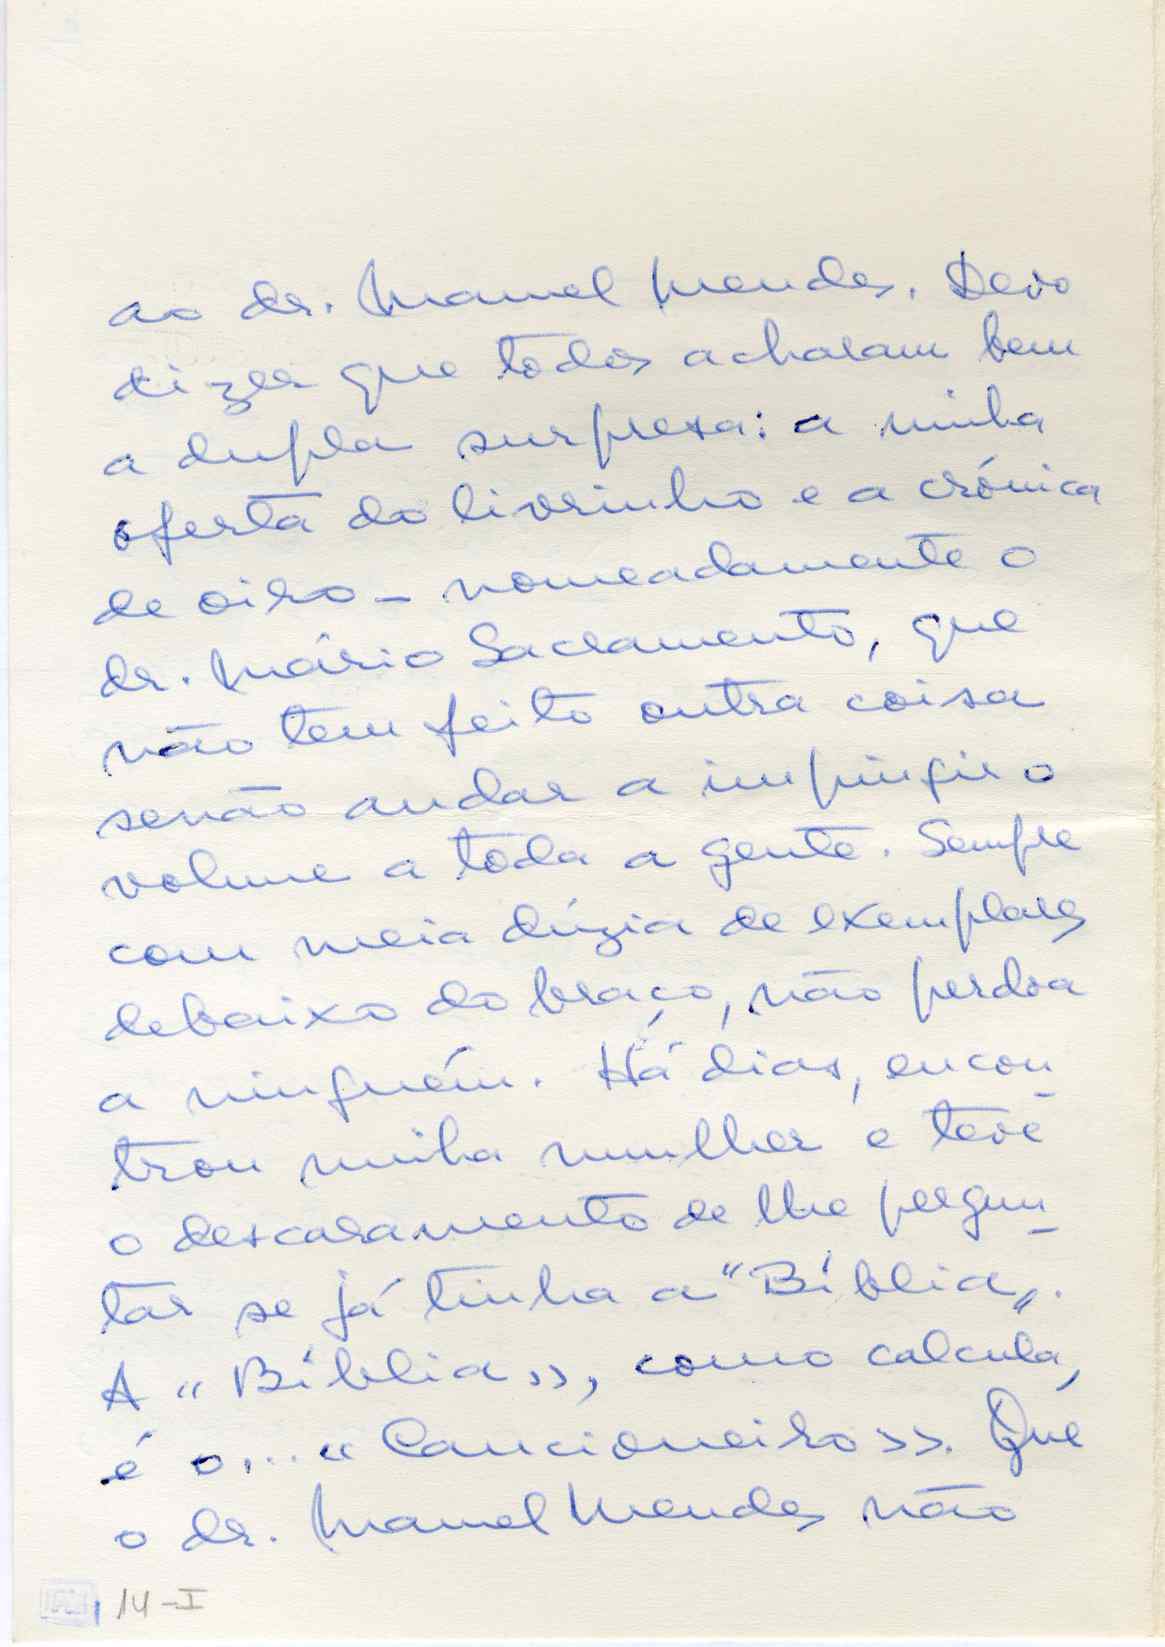 ao dr. Manuel Mendes. Devo
dizer que todos acharam bem
a dupla surpresa: a minha
oferta do livrinho e a crónica
de oiro – nomeadamente o
dr. Mário Sacramento, que
não tem feito outra coisa
senão andar a impingir o
volume a toda a gente. Sempre
com meia dúzia de exemplares
debaixo do braço, não perdoa
a ninguém. Há dias, encon-
trou minha mulher e teve
o descaramento de lhe pergun-
tar se já tinha a "Bíblia".
A «Bíblia», como calcula,
é o... «Cancioneiro». Que
o dr. Manuel Mendes não
14-I